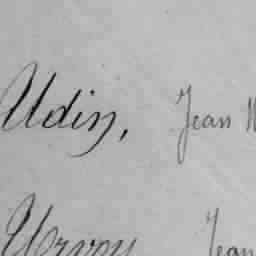 Udin, Jean
Urvoy Jean